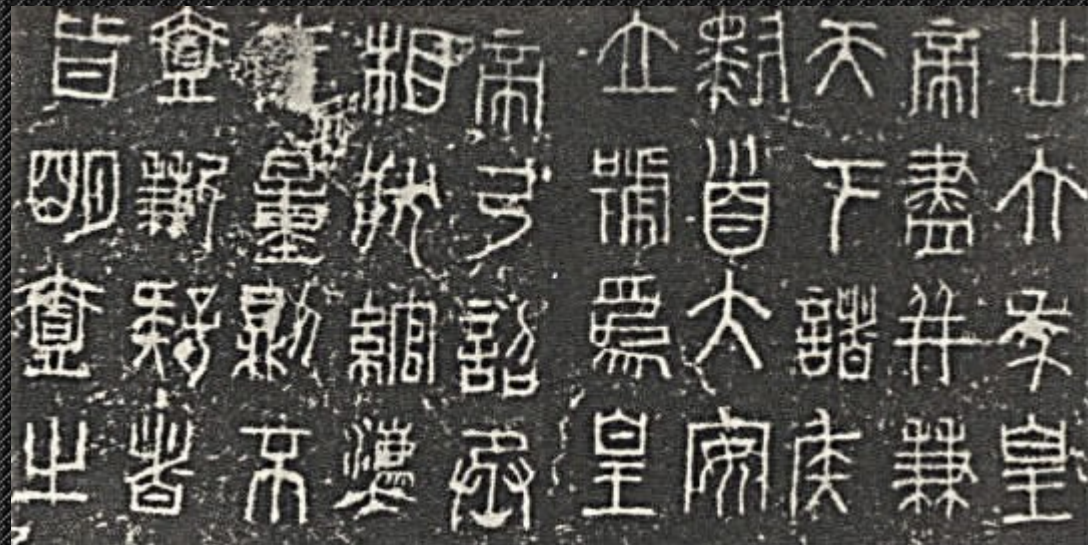 廿六年皇
帝盡并兼
天下諸侯
黔首大安
立號為皇
帝乃詔丞
相狀綰灋
量則不
壹歉疑者
皆明壹之